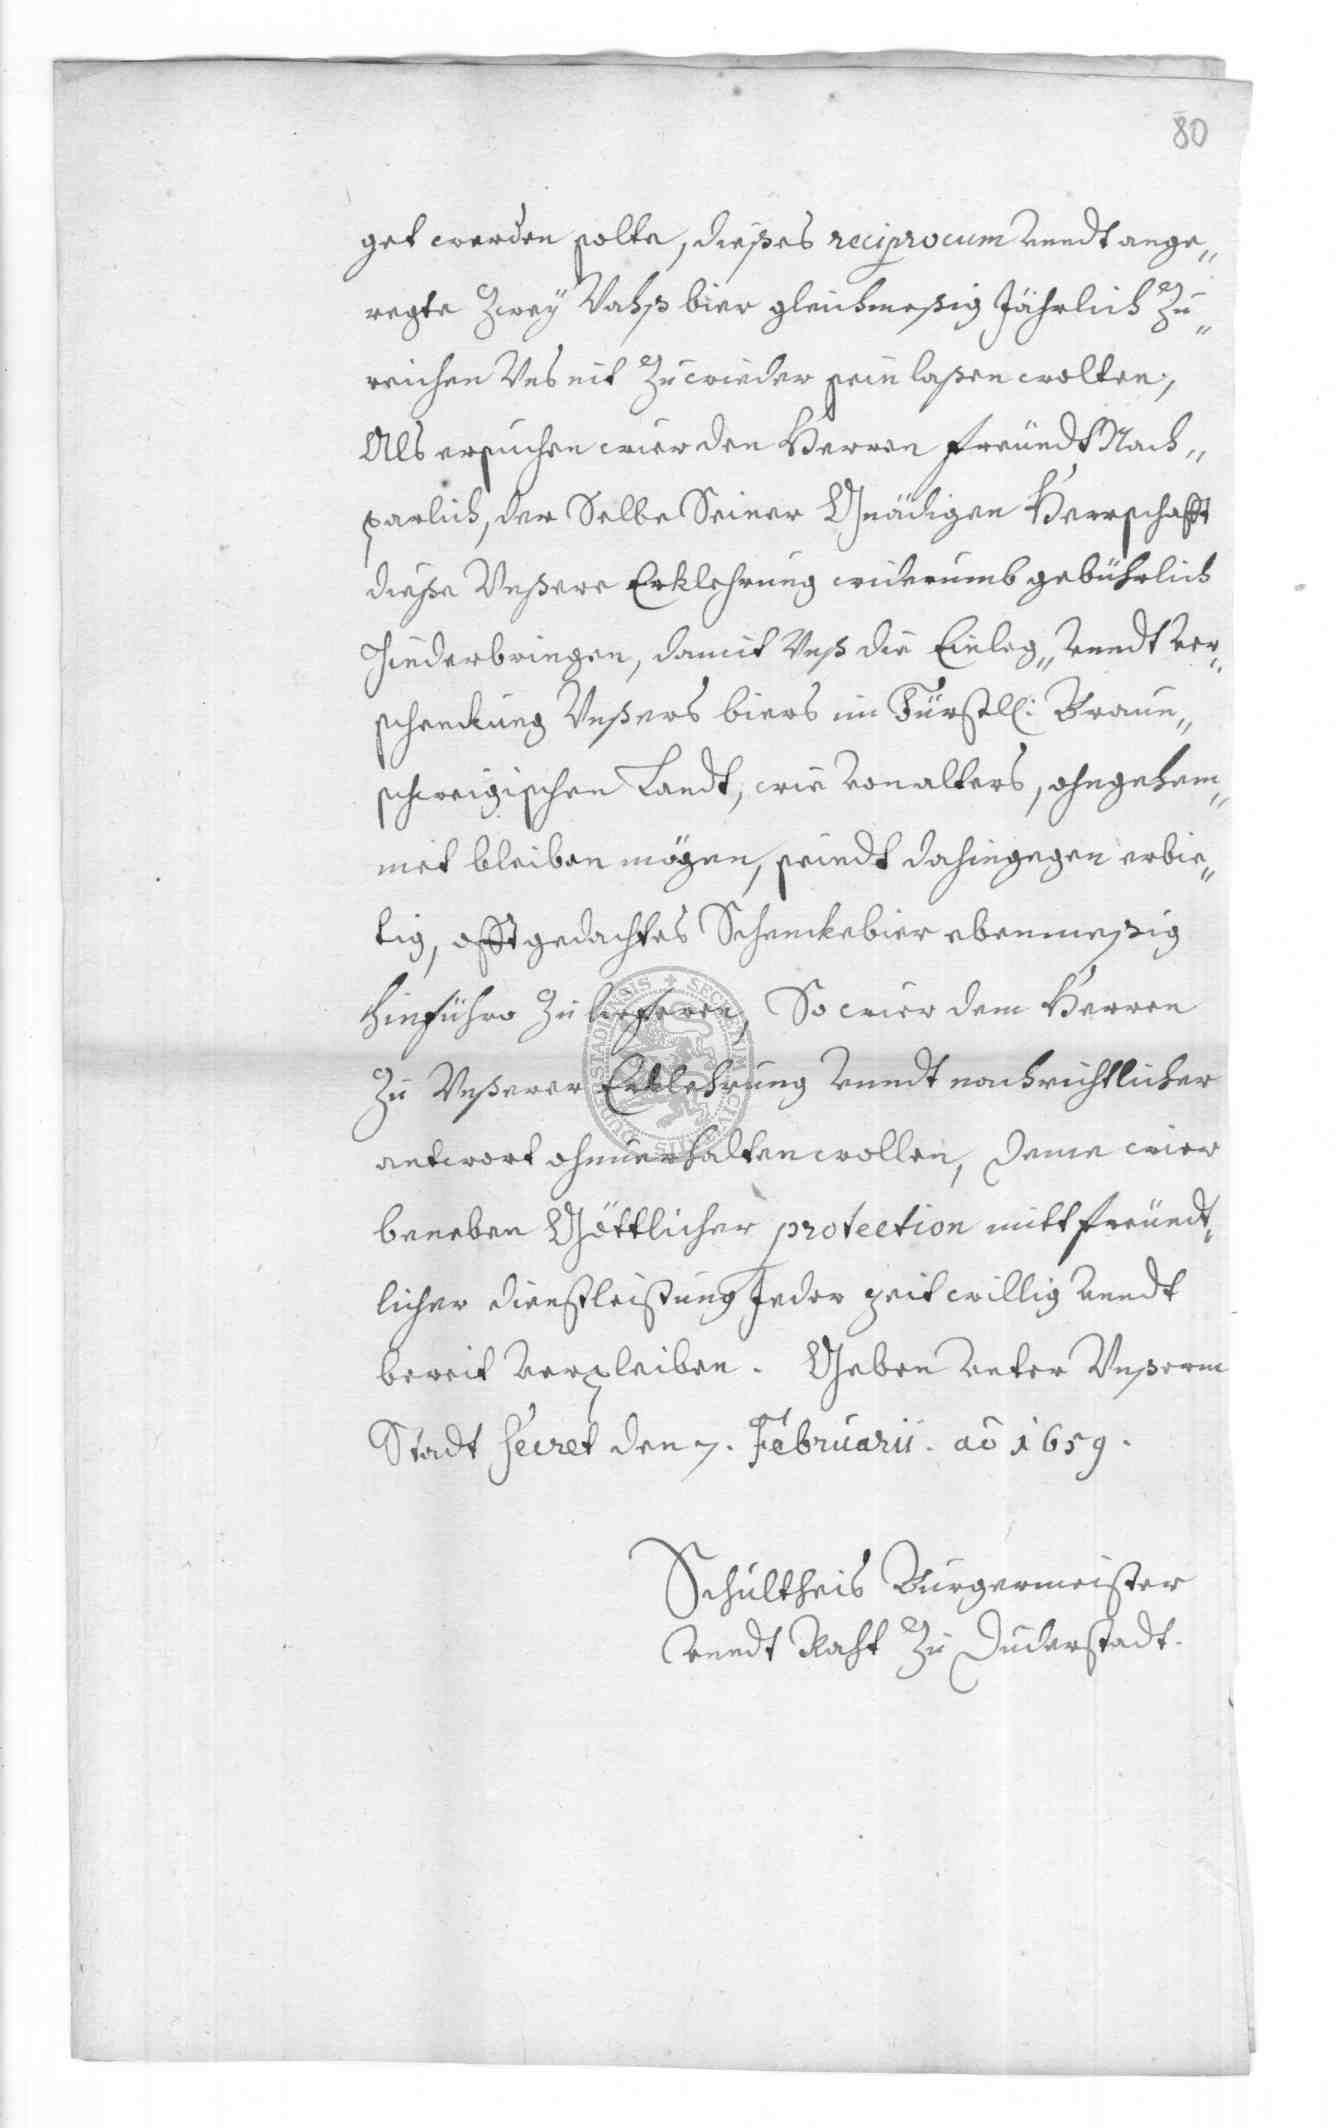 80
get werden solte, dießes reciprocum vundt ange„
regte Zwey Vahß bier gleichmeßig Jährlich Zu„
reichen Vns nit Zuwieder sein laßen wolten,
Als ersuchen wier den Herren freundt Nach„
parlich, der Selbe Seiner Gnädigen Herrschafft
dieße Vnßere Erklehrung widerumb gebührlich
hinderbringen, damit Vnß die Einleg„ vundt ver„
schenckung Vnßers biers im Fürstl: Braun„
schweigischen Landt, wie von alters, ohngehem„
met bleiben mögen, seindt dahingegen erbie„
tig, offtgedachtes Schenckebier ebenmeßig
hinführo Zu liefferen, So wier dem Herren
Zu Vnßerer Erklehrung vundt nachrichtlicher
antwort ohnuerhalten wollen, deme wier
beneben Göttlicher protection mitt freundt„
licher dienstleistung Jeder zeit willig vundt
bereit verpleiben. Geben vnter Vnßerm
Stadt Secret den 7. Februarii. aõ 1659.
Schultheis Burgermeister
vundt Raht Zu Duderstadt.